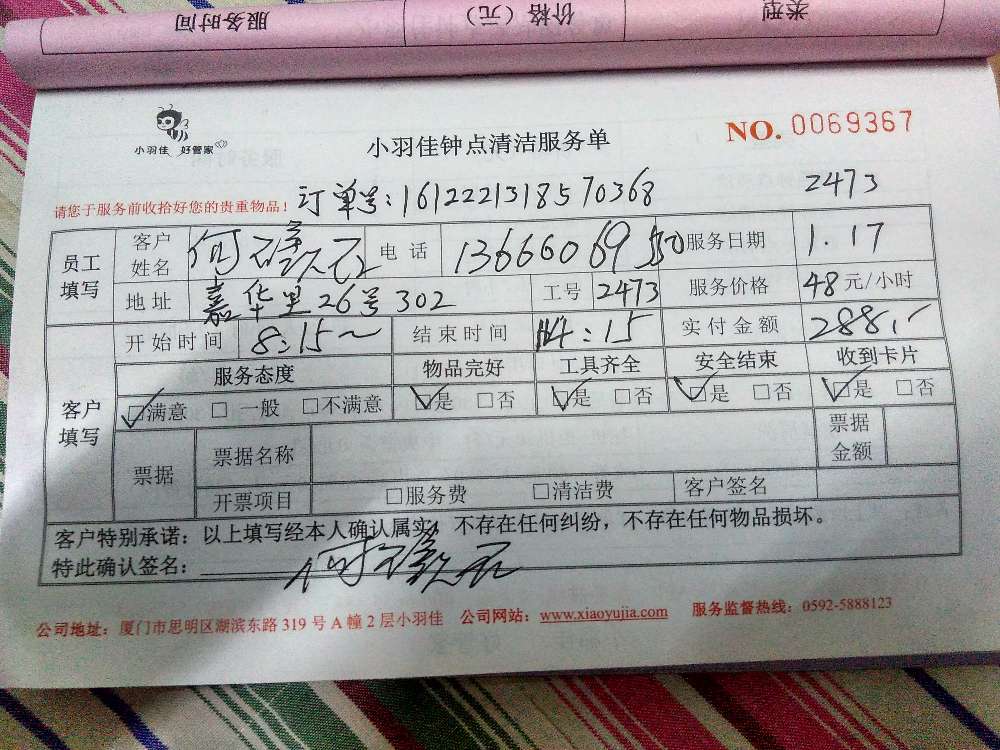 服务时间 价格（元） 类型
小羽佳 好管家
小羽佳钟点清洁服务单
NO. 0069367
请您于服务前收拾好您的贵重物品！ 订单号:161222131857036​8 2473
员工填写 客户姓名 电话 服务日期 1.17
地址 嘉华里26号302 工号 2473 服务价格 48元/小时
客户填写 开始时间 8:15～ 结束时间 14:15 实付金额 288.-
服务态度 物品完好 工具齐全 安全结束 收到卡片
☑满意 □一般 □不满意 ☑是 □否 ☑是 □否 ☑是 □否 ☑是 □否
票据 票据名称 票据金额
开票项目 □服务费 □清洁费 客户签名
客户特别承诺：以上填写经本人确认属实，不存在任何纠纷，不存在任何物品损坏。
特此确认签名：
公司地址：厦门市思明区湖滨东路 319 号 A 幢 2 层小羽佳 公司网站：www.xiaoyujia.com 服务监督热线：0592-5888123